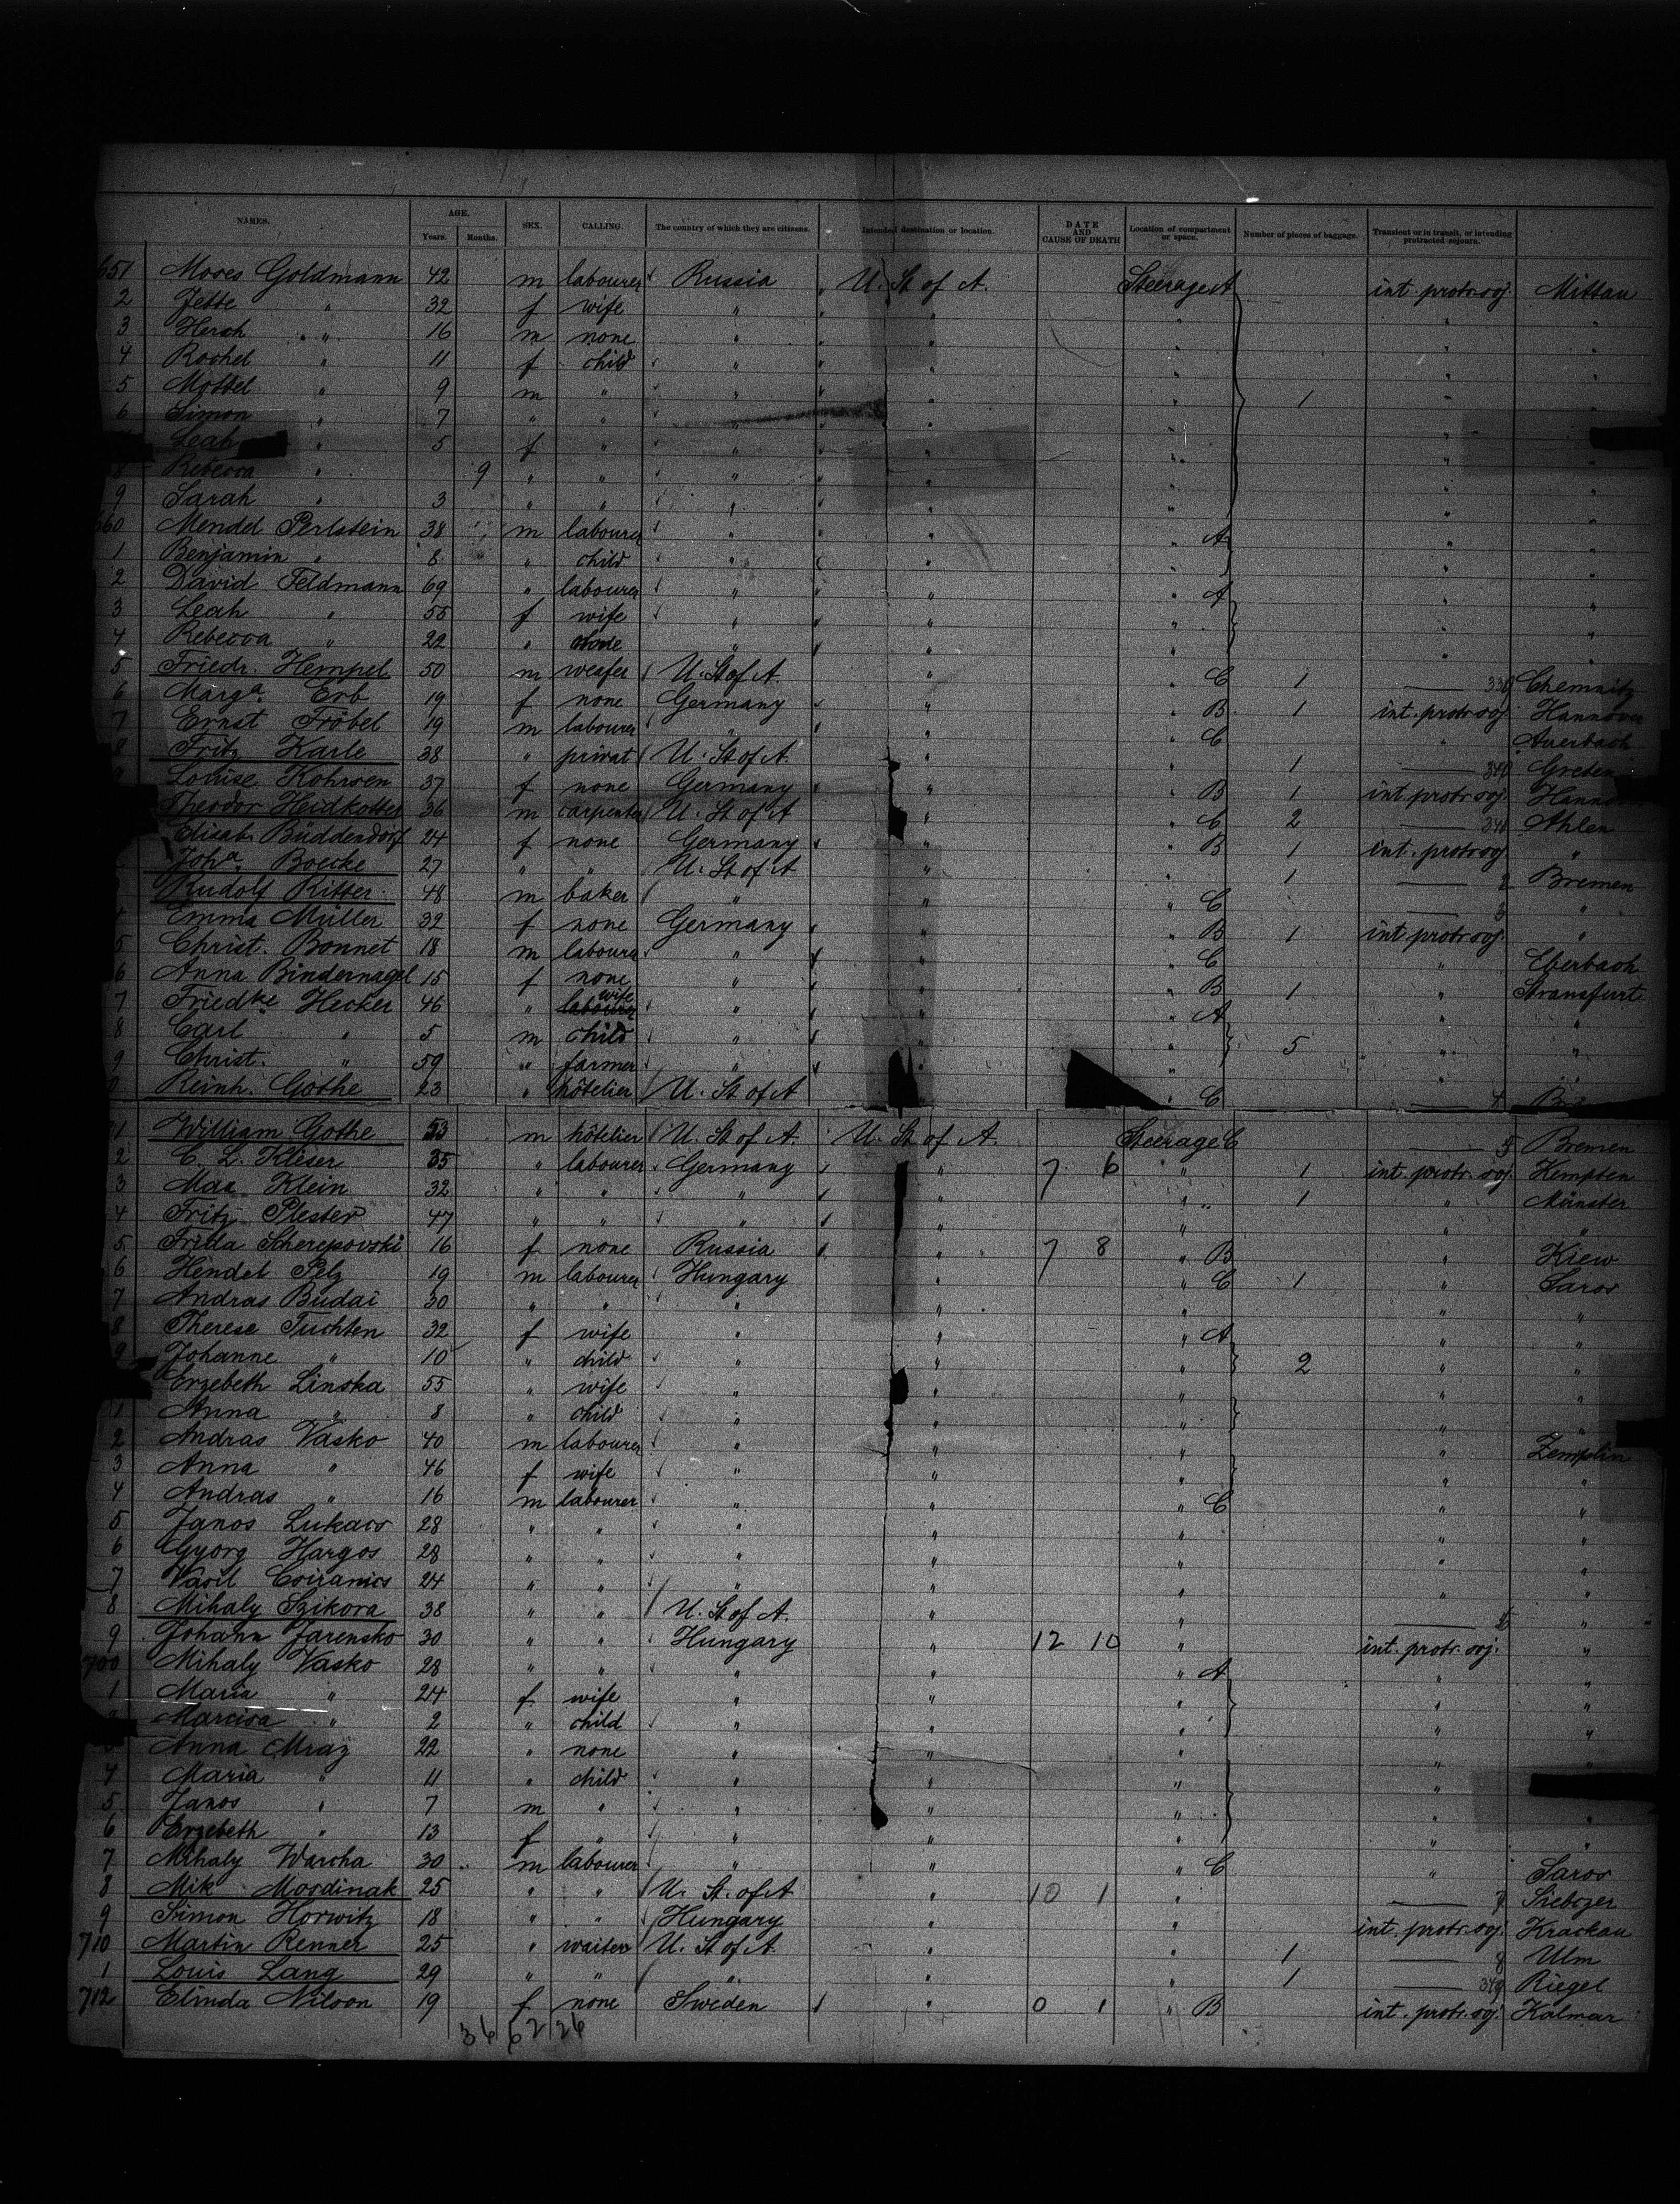 NAMES. AGE. Years. Months. SEX. CALLING. The country of which they are citizens. Intended destination or location. DATE AND CAUSE OF DEATH Location of compartment or space. Number of pieces of baggage. Transient or in transit, or intending protracted sojourn.
651 Moses Goldmann 42 m labourer Russia U. St of A. Steerage A int. protr. soj. Mittau
2 Jette " 32 f wife " " " " "
3 Hersh " 16 m none " " " " "
4 Rochel " 11 f child " " " " "
5 Mottel " 9 m " " " " 1 " "
6 Simon " 7 " " " " " "
Leah " 5 f " " " " "
8 Rebecca " 9 " " " " " " "
9 Sarah " 3 " " " " " " "
660 Mendel Perlstein 38 m labourer " " " A " "
1 Benjamin " 8 " child " " " " "
2 David Feldmann 69 " labourer " " " A " "
3 Leah " 55 f wife " " " " "
4 Rebecca " 22 " " " " " "
5 Friedr. Hempel 50 m weafer U. St of A. " " C 1 — 339 Chemnitz
6 Marga. Erb 19 f none Germany " " B 1 int. protr. soj. Hannover
7 Ernst Fröbel 19 m labourer " " " C " Auerbach
8 Fritz Karle 38 " privat U. St of A. " " 1 — 340 Greten
9 Louise Rohrsen 37 f none Germany " " B 1 int. protr. soj. Hannover
Theodor Heidkotter 36 m carpenter U. St of A " " C 2 — 341 Ahlen
Elisab. Büddendorf 24 f none Germany " " B 1 int. protr. soj "
Joha. Boecke 27 " " U. St of A " " 1 — 2 Bremen
Rudolf Ritter 48 m baker " " " C — 3 "
4 Emma Müller 32 f none Germany " " B 1 int protr soj. "
5 Christ. Bonnet 18 m labourer " " " C " Eberbach
6 Anna Bindernagel 15 f none " " " B 1 " Stransfurt
7 Friedke Hecker 46 " wife " " " A " "
8 Carl " 5 m child " " " 5 " "
9 Christ. " 59 " farmer " " " " "
0 Reinh. Gothe 23 " hôtelier U. St of A " " C — 4
1 William Gothe 53 m hôtelier U. St of A. U. St of A. Steerage C — 5 Bremen
2 C. L. Kliser 35 " labourer Germany " 7 6 " 1 int. protr. soj. Kempten
3 Max Klein 32 " " " " " 1 " Münster
4 Fritz Plester 47 " " " " " " "
5 Frida Scherepovski 16 f none Russia " 7 8 " B " Kiew
6 Hendel Pelz 19 m labourer Hungary " " C 1 " Saros
7 Andras Budai 30 " " " " " " "
8 Therese Tuchten 32 f wife " " " A " "
9 Johanne " 10 " child " " " 2 " "
Erzebeth Linska 55 " wife " " " " "
1 Anna " 8 " child " " " " "
2 Andras Vasko 40 m labourer " " " " Zemplin
3 Anna " 46 f wife " " " " "
4 Andras " 16 m labourer " " " C " "
5 Janos Lukacs 28 " " " " " " "
6 Gyorg Hargos 28 " " " " " " "
7 Vasil 24 " " " " " " "
8 Mihaly Szikora 38 " " U. St of A. " " — "
9 Johann Jarensko 30 " " Hungary " 12 10 " int. protr. soj. "
700 Mihaly Vasko 28 " " " " " A " "
1 Maria " 24 f wife " " " " "
Marcisa " 2 " child " " " " "
Anna Mraz 22 " none " " " " "
4 Maria " 11 " child " " " "
5 Janos " 7 m " " " " " "
6 Erzebeth " 13 f " " " " " "
7 Mihaly Warcha 30 m labourer " " " C " Saros
8 Mik Mordinak 25 " " U. St. of A " 10 1 " — 7
9 Simon Horwitz 18 " " Hungary " " int. protr. soj. Krackau
710 Martin Renner 25 " waiter U. St of A. " " 1 — 8 Ulm
1 Louis Lang 29 " " " " " 1 — 349 Riegel
712 Elinda Nilson 19 f none Sweden " 0 1 " B int. protr. soj. Kalmar
36 62 26